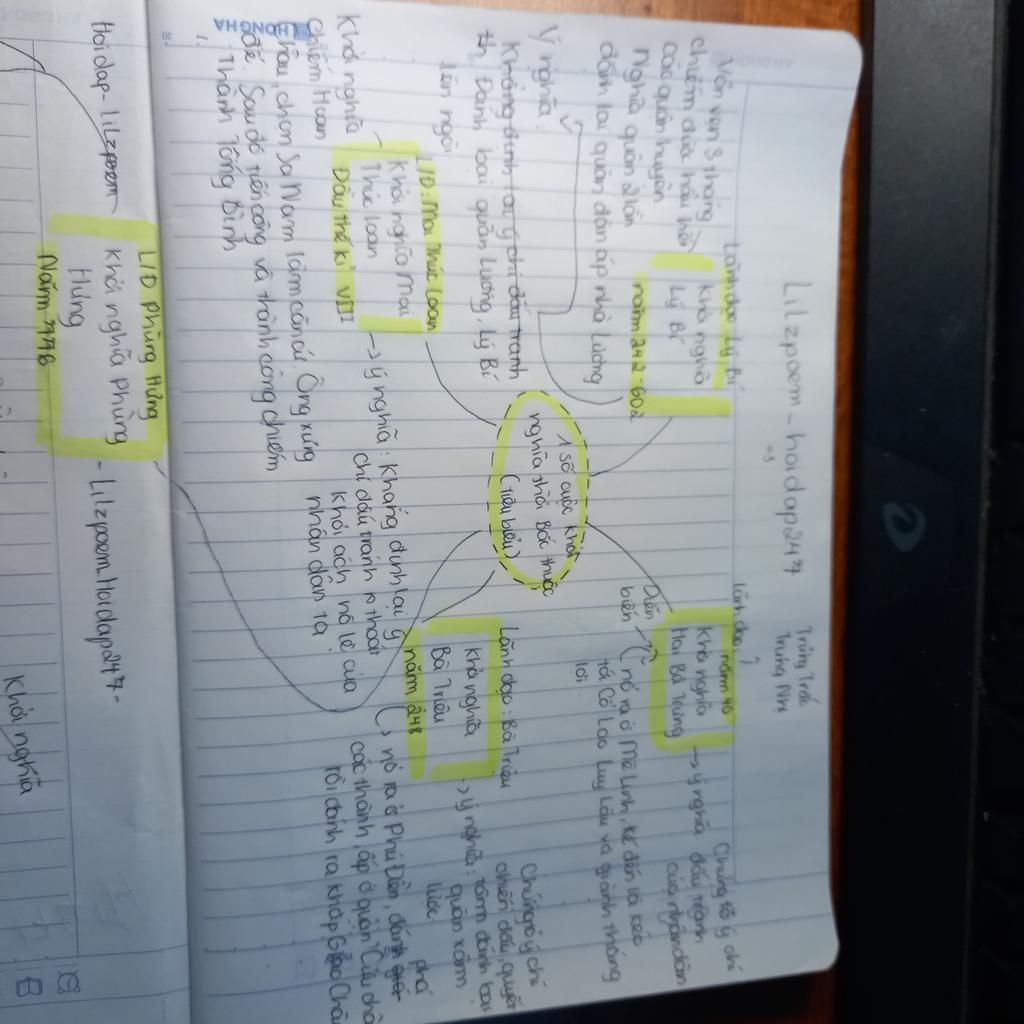 Lilzpoem - hoidap247
Trưng Trắc
Trưng Nhị
Lãnh đạo Lý Bí
lãnh đạo
Vỏn vẹn 3 tháng
chiếm được hầu hết
các quận huyện
Nghĩa quân 2 lần
đánh lại quân đàn áp nhà Lương
Khởi nghĩa
Lý Bí
năm 242-602
Ý nghĩa:
Khẳng định lại ý chí đấu tranh
Đánh bại quân Lương, Lý Bí
lên ngôi
năm 40
Khởi nghĩa
Hai Bà Trưng
-> ý nghĩa
Chứng tỏ ý chí
đấu tranh
của nhân dân
Diễn
biến
nổ ra ở Mê Linh, kế đến là kéo
tới Cổ Loa Luy Lâu và giành thắng
lợi
1 số cuộc khởi
nghĩa thời Bắc thuộc
(tiêu biểu)
L/Đ: Mai Thúc Loan
Khởi nghĩa Mai
Thúc Loan
Đầu thế kỉ VIII
-> ý nghĩa: Khẳng định lại ý
chí đấu tranh
thoát
khỏi ách nô lệ của
nhân dân ta
Khởi nghĩa
chiếm Hoan
Châu, chọn Sa Nam làm căn cứ. Ông xưng
đế. Sau đó tiến công và thành công chiếm
Thành Tống Bình
Lãnh đạo: Bà Triệu
khởi nghĩa
Bà Triệu
năm 248
-> ý nghĩa:
Chứng tỏ ý chí
chiến đấu, quyết
tâm đánh bại
quân xâm
lược
nổ ra ở Phú Điền,
phá
các thành, ấp ở quận Cửu Chân
rồi đánh ra khắp Giao Châu
HONG HA
L/Đ Phùng Hưng
Hoidap-lilzpoem -
khởi nghĩa Phùng
Hưng
Năm 776
- Lilzpoem_Hoidap247-
Khởi nghĩa